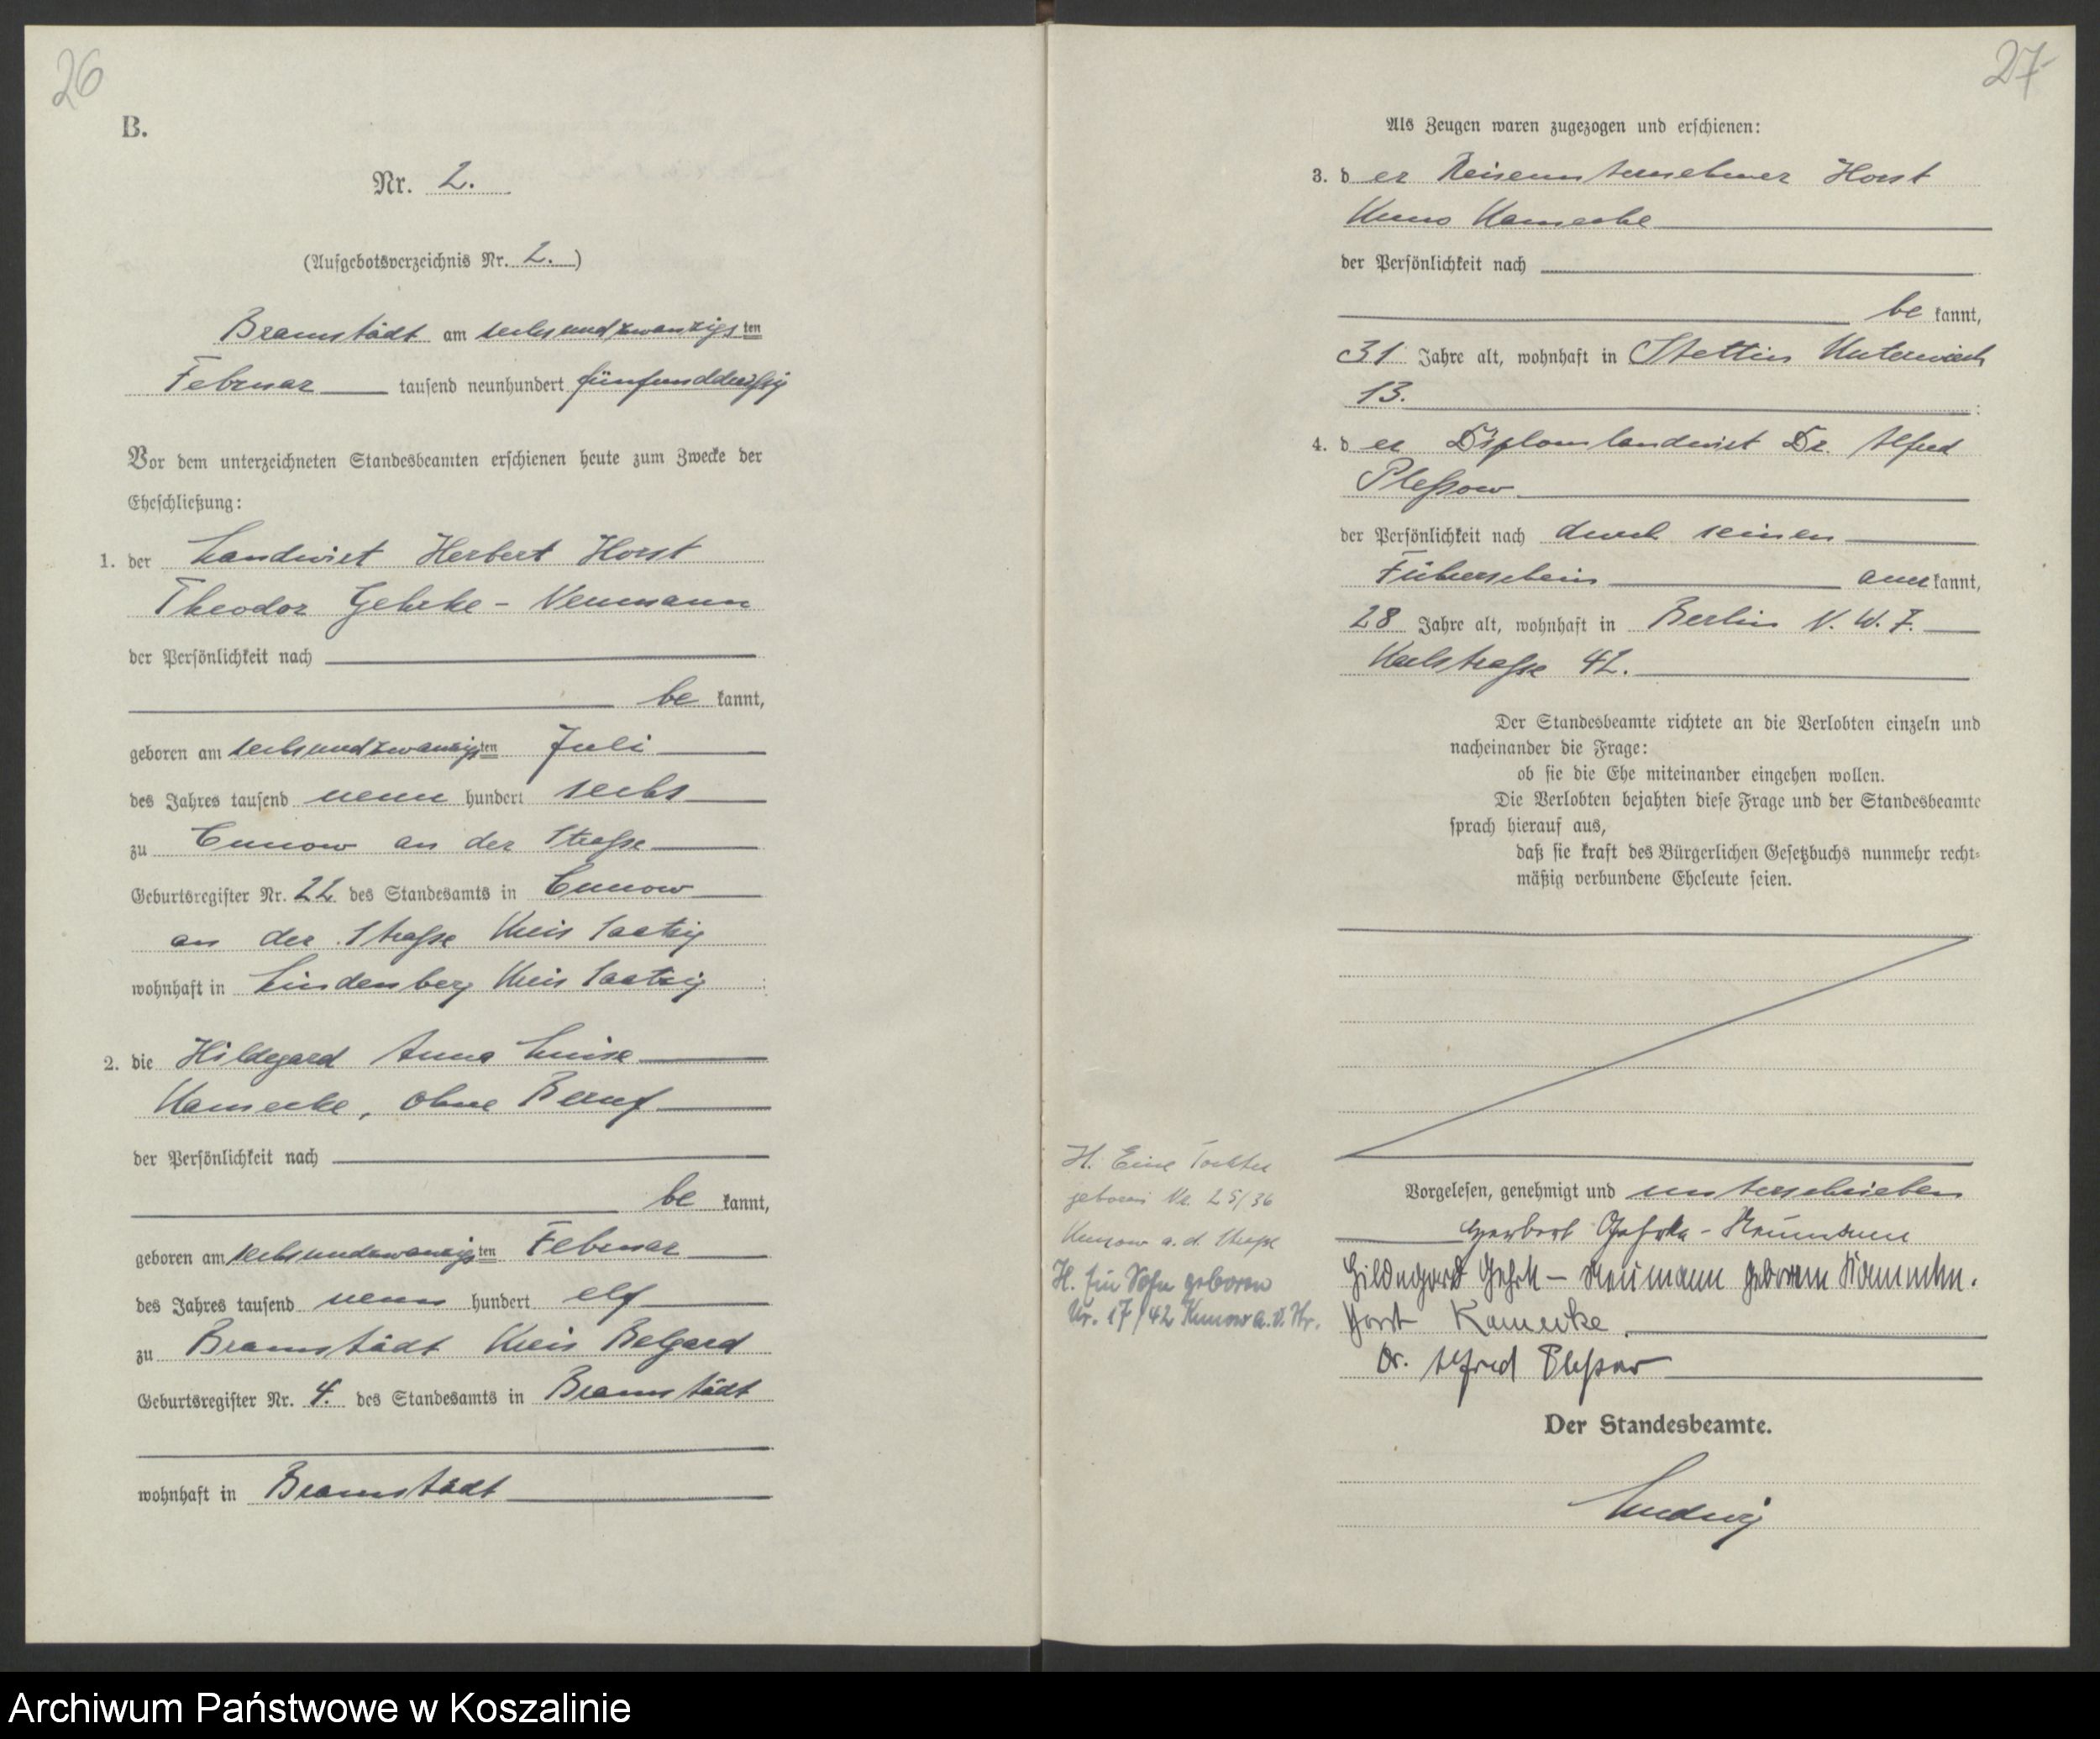 26
B.
Nr. 2.
(Aufgebotsverzeichnis Nr. 2.)
Bramstädt am sechsundzwanzigsten
Februar tausend neunhundert fünfunddreißig
Vor dem unterzeichneten Standesbeamten erschienen heute zum Zwecke der
Eheschließung:
1. der Landwirt Herbert Horst
Theodor Gehrke - Neumann
der Persönlichkeit nach
be kannt,
geboren am sechsundzwanzigsten Juli
des Jahres tausend neun hundert sechs
zu Cunow an der Straße
Geburtsregister Nr. 22 des Standesamts in Cunow
an der Straße Kreis Saatzig
wohnhaft in Lindenberg Kreis Saatzig :
2. die Hildegard Anna Luise
Kamecke, ohne Beruf
der Persönlichkeit nach
be kannt,
geboren am sechsundzwanzigsten Februar
des Jahres tausend neun hundert elf
zu Bramstädt Kreis Belgard
Geburtsregister Nr. 4. des Standesamts in Bramstädt
wohnhaft in Bramstädt
27
Als Zeugen waren zugezogen und erschienen:
3. d er Reiseunternehmer Horst
Kuno Kamecke
der Persönlichkeit nach
be kannt,
31 Jahre alt, wohnhaft in Stettin Unterwiek
13. :
4. d er Diplomlandwirt Dr. Alfred
Pleßow
der Persönlichkeit nach durch seinen
Führerschein aner kannt,
28 Jahre alt, wohnhaft in Berlin N. W. 7.
Karlstraße 42.
Der Standesbeamte richtete an die Verlobten einzeln und
nacheinander die Frage:
ob sie die Ehe miteinander eingehen wollen.
Die Verlobten bejahten diese Frage und der Standesbeamte
sprach hierauf aus,
daß sie kraft des Bürgerlichen Gesetzbuchs nunmehr recht-
mäßig verbundene Eheleute seien.
H. Eine Tochter
geboren Nr. 25/36
Kunow a. d. Straße
H. Ein Sohn geboren
Nr. 17/42 Kunow a. d. Str.
Vorgelesen, genehmigt und unterschrieben
Herbert Gehrke - Neumann
Hildegard Gehrke - Neumann geborene Kamecke.
Horst Kamecke.
Dr. Alfred Pleßow
Der Standesbeamte.
Ludwig
Archiwum Państwowe w Koszalinie